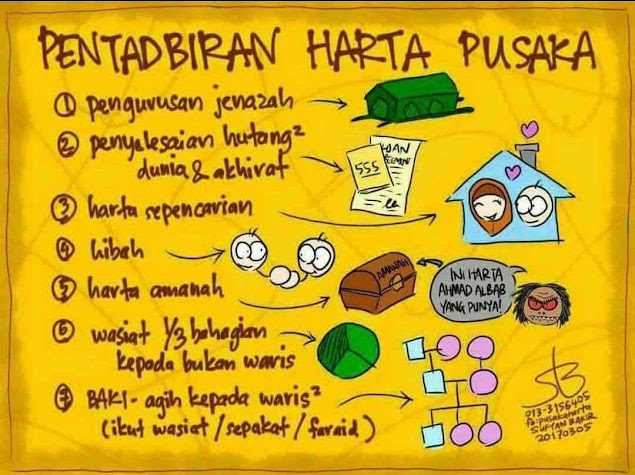 PENTADBIRAN HARTA PUSAKA
1 pengurusan jenazah
2 penyelesaian hutang²
dunia & akhirat
555
LOAN
AGREEMENT
3 harta sepencarian
4 hibah
5 harta amanah
AMANAH
INI HARTA
AHMAD ALBAB
YANG PUNYA!
6 wasiat 1/3 bahagian
kepada bukan waris
7 BAKI - agih kepada waris²
(ikut wasiat / sepakat / faraid)
013-3156405
fb:pusakaharta
SUFYAN BAKIR
20170305